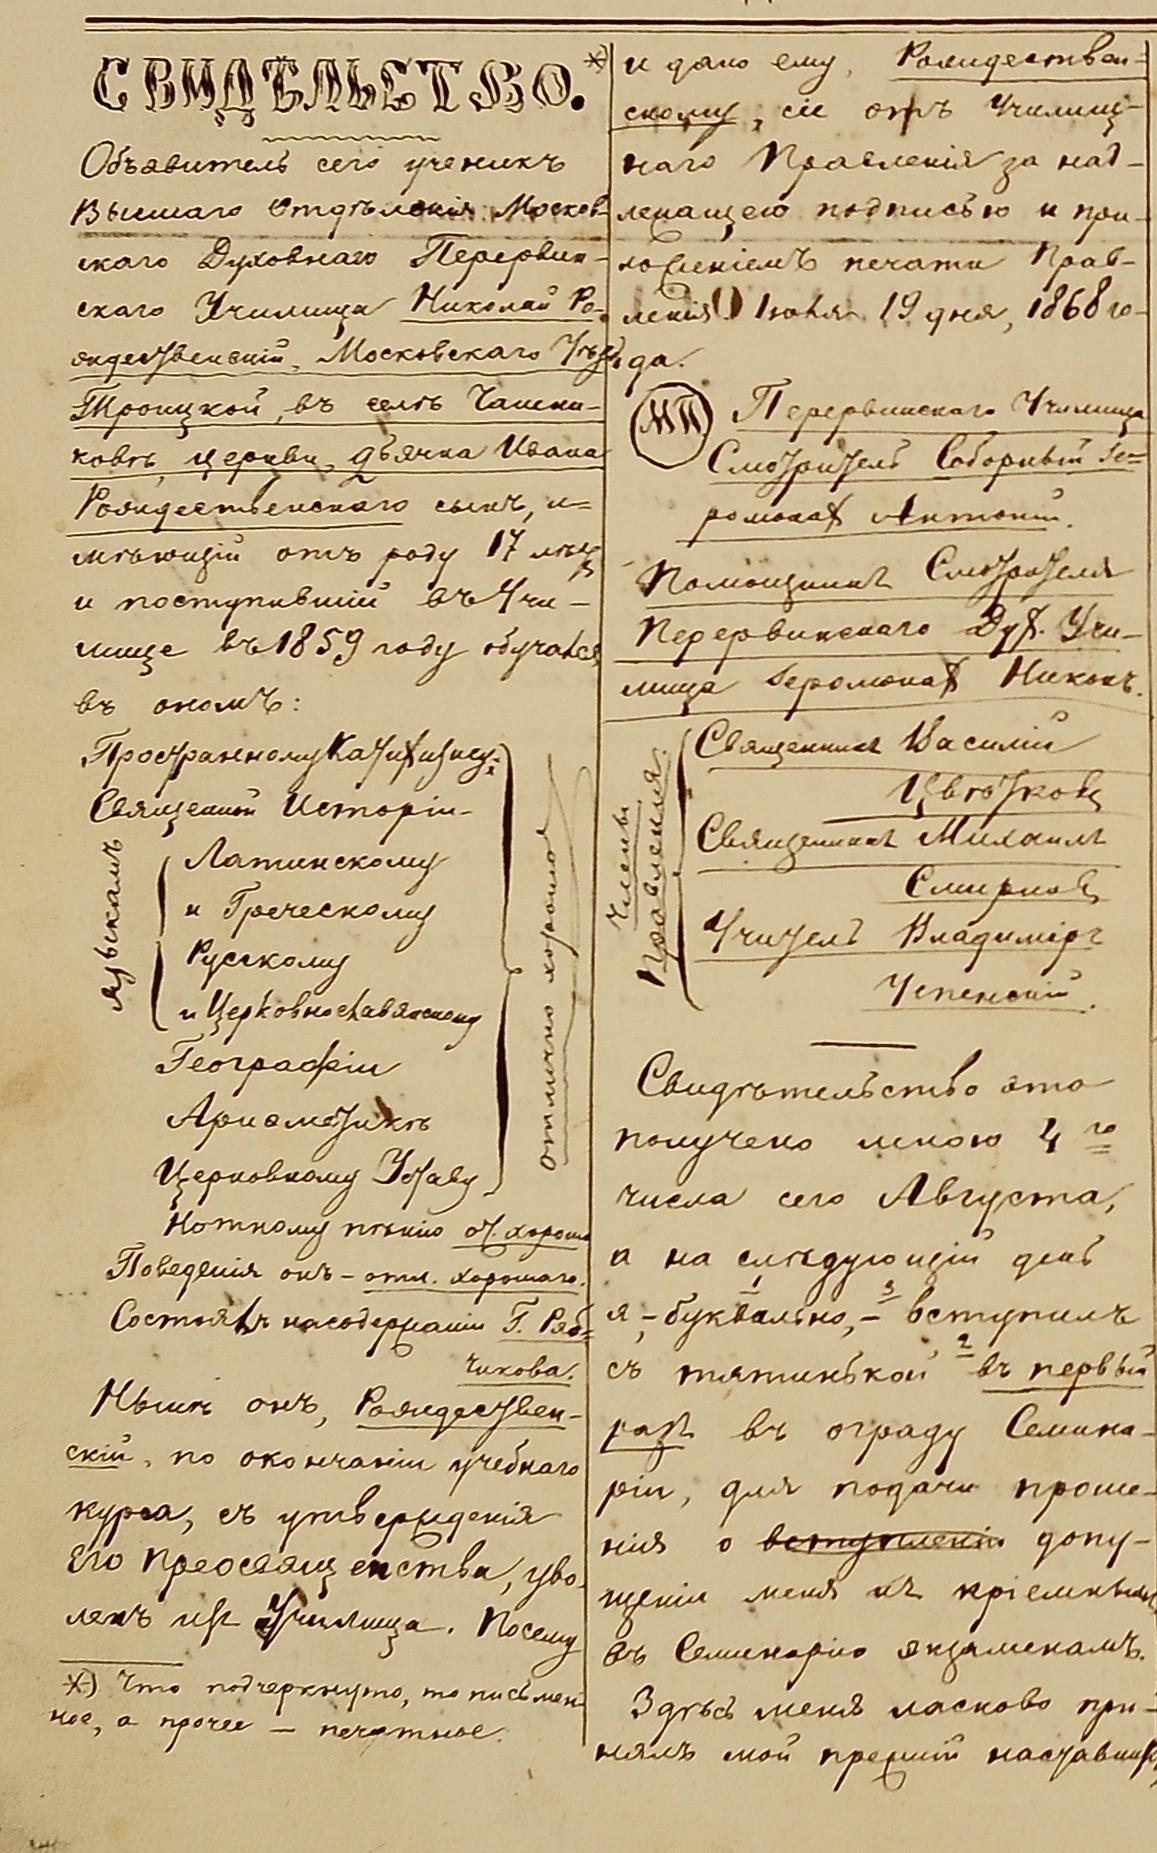 СВИДѢТЕЛЬСТВО. *)
Объявитель сего ученикъ
Высшаго Отдѣленія Москов-
скаго Духовнаго Перервин-
скаго Училища Николай Ро-
ждественскій, Московскаго Уѣзд.
Троицкой, въ селѣ Чашни-
ковѣ, церкви, дьячка Ивана
Рождественскаго сынъ, и-
мѣющій отъ роду 17 лѣтъ
и поступившій въ Учи-
лище въ 1859 году обучался
въ ономъ:
Пространному Катихизису;
Священной Исторіи
языкамъ
Латинскому
и Греческому
Русскому
и Церковнославянскому
Географіи
Ариѳметикѣ
Церковному Уставу
отлично хорошо
Нотному пѣнію оч. хорошо
Поведенія онъ – отл. хорошаго.
Состоялъ на содержаніи Г. Ряб-
чикова.
Нынѣ онъ, Рождествен-
скій, по окончаніи учебнаго
курса, съ утвержденія
Его Преосвященства, уво-
ленъ изъ Училища. Посему
*) Что подчеркнуто, то письмен-
ное, а прочее – печатное.
и дано ему, Рождествен-
скому, сіе отъ Училищ-
наго Правленія за над-
лежащею подписью и при-
ложеніемъ печати Прав-
ленія Іюля 19 дня, 1868 го-
да.
МП
Перервинскаго Училища
Смотритель Соборный Іе-
ромонахъ Антоній.
Помощникъ Смотрителя
Перервинскаго Дух. Учи-
лища Іеромонахъ Никонъ.
Члены
Правленія.
Священникъ Василій
Цвѣтковъ
Священникъ Михаилъ
Смирновъ
Учитель Владиміръ
Успенскій.
Свидѣтельство это
получено мною 4го
числа сего Августа,
а на слѣдующій день
я, – буквально, – 3 вступилъ
съ тятинькой 2 въ первый
разъ въ ограду Семина-
ріи, для подачи проше-
нія о вступленіи допу-
щеніи меня къ пріемнымъ
въ Семинарію экзаменамъ.
Здѣсь меня ласково при-
нялъ мой прежній наставникъ,